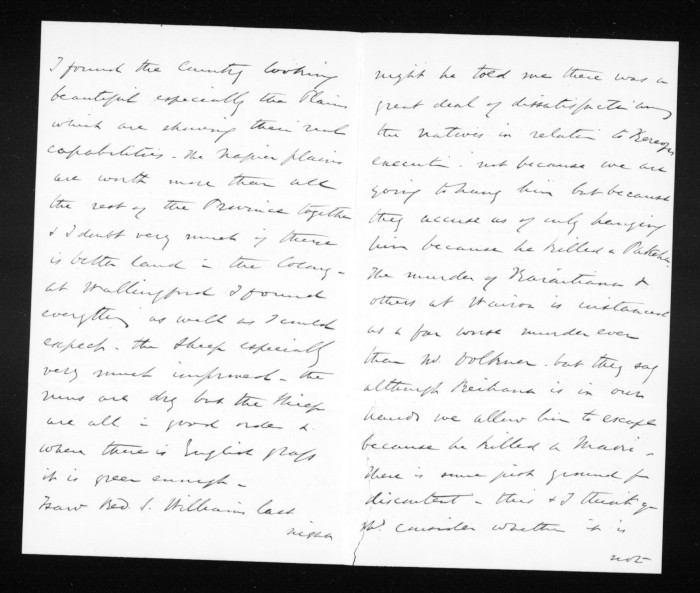 I found the Country looking
beautiful especially the Plains
which are showing their real
capabilities - the Napier plains
are worth more than all
the rest of the Province together
& I doubt very much if there
is better land in the Colony -
at Wallingford I found
everything as well as I could
expect - the Sheep especially
very much improved - the
runs are dry but the Sheep
are all in good order &
where there is English grass
it is green enough -
I saw Red. S. Williams last
night
night he told me there was a
great deal of dissatisfaction among
the natives in relation to Kereopa's
execution - not because we are
going to hang him but because
they accuse us of only hanging
him because he killed a Pakeha.
The murder of Karaitiana &
others at Wairoa is instanced
as a far worse murder even
than Mr. Volkner - but they say
although Reihana is in our
hands we allow him to escape
because he killed a Maori -
There is some just ground for
discontent - this & I think you
shd. consider whether it is
not